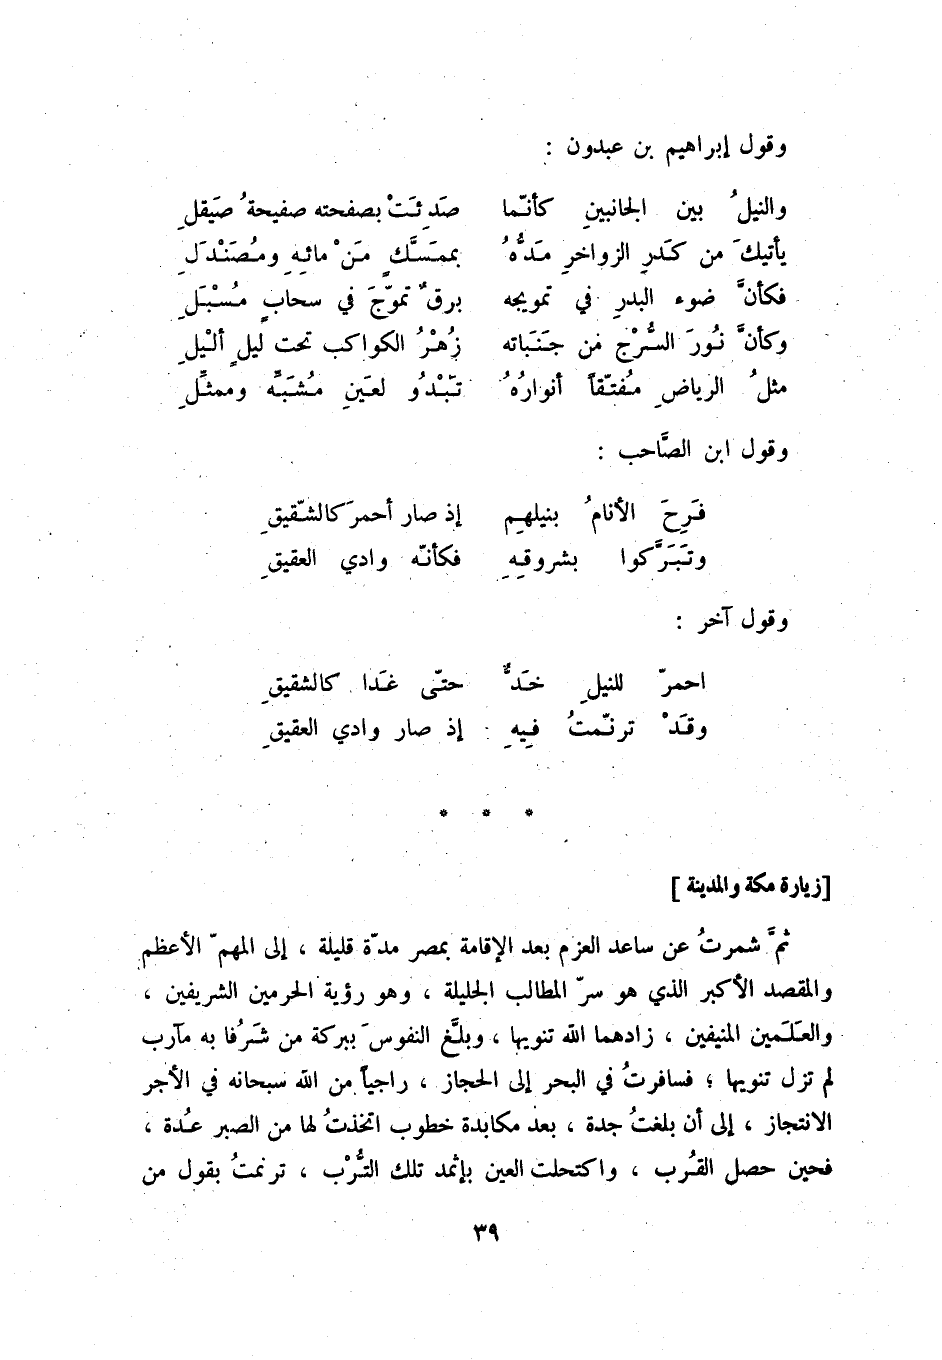 وقول إبراهيم بن عبدون :
والنيلُ بين الجانبينِ كأنّما صَدِئَتْ بصفحته صفيحةُ صَيقلِ
يأتيكَ من كَدَرِ الزواخرِ مَدُّهُ بممَسَّكٍ مَنْ مائِهِ ومُصَنْدَلِ
فكأنَّ ضوء البدرِ في تمويجه برقٌ تموّجَ في سحابٍ مُسْبَلِ
وكأنَّ نُورَ السُّرْجِ من جَنَبَاته زُهْرُ الكواكب تحت ليلٍ أليْلِ
مثلُ الرياضِ مُفتّقاً أنوارُهُ تَبْدُو لعَينِ مُشَبِّه وممثِّلِ
وقول ابن الصَّاحب :
فَرِحَ الأنامُ بنيلهِم إذ صار أحمرَ كالشّقيقِ
وتَبَرَّكوا بشروقِهِ فكأنّه وادي العقيقِ
وقول آخر :
احمرّ للنيلِ خَدٌّ حتّى غَدا كالشقيقِ
وقَدْ ترنّمتُ فِيهِ إذ صار وادي العقيقِ
* * *
[زيارة مكة والمدينة ]
ثمَّ شمرتُ عن ساعد العزم بعد الإقامة بمصر مدّة قليلة ، إلى المهمّ الأعظم
والمقصد الأكبر الذي هو سرّ المطالب الجليلة ، وهو رؤية الحرمين الشريفين ،
والعَلَمين المنيفين ، زادهما الله تنويها ، وبلَّغ النفوسَ ببركة من شَرُفا به مآرب
لم تزل تنويها ؛ فسافرتُ في البحر إلى الحجاز ، راجياً من الله سبحانه في الأجر
الانتجاز ، إلى أن بلغتُ جدة ، بعد مكابدة خطوب اتخذتُ لها من الصبر عُدة ،
فحين حصل القُرب ، واكتحلت العين بإثمد تلك التُّرْب ، ترنمتُ بقول من
٣٩